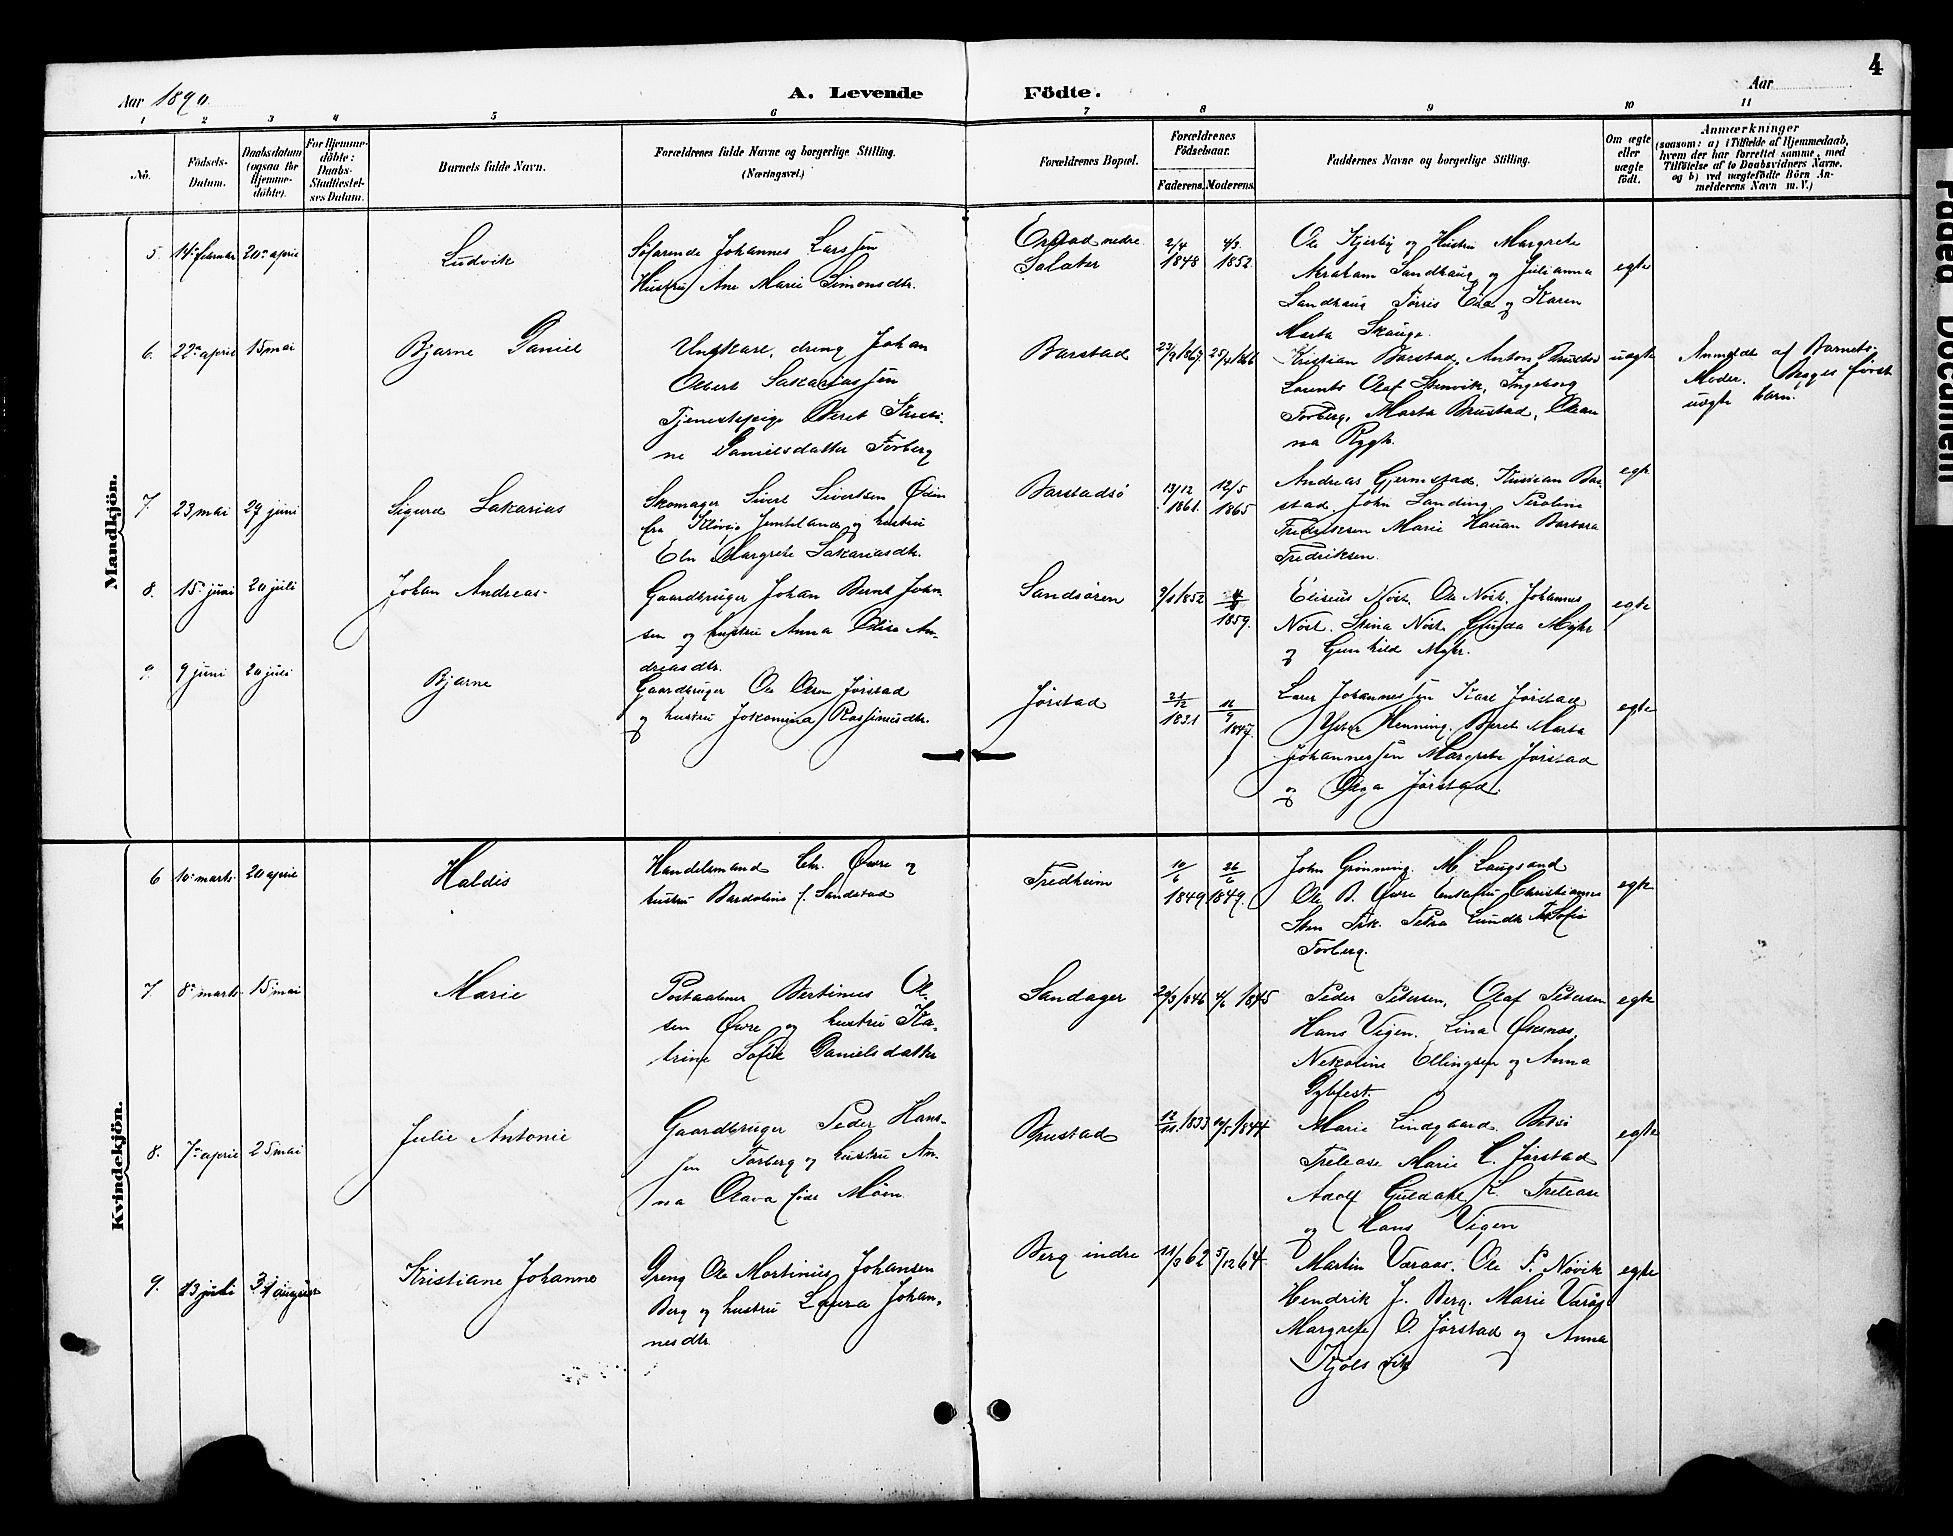 4
Aar 1890. A. Levende Födte. Aar
1 2 3 4 5 6 7 8 9 10 11
No. Födsels-Datum. Daabsdatum (ogsaa for Hjemmedöbte). For Hjemmedöbte: Daabs-Stadfæstelses Datum. Barnets fulde Navn. Forældrenes fulde Navne og borgerlige Stilling. (Næringsvei.) Forældrenes Bopæl. Forældrenes Födselsaar. Faderens. Moderens. Faddernes Navne og borgerlige Stilling. Om ægte eller uægte födt. Anmærkninger (saasom: a) i Tilfælde af Hjemmedaab, hvem der har forrettet samme, med Tilföielse af to Daabsvidners Navne. og b) ved uægtefödte Börn Anmelderens Navn m. V.)
Mandkjön.
5. 14. februar 20. april Ludvik Søfarende Johannes Larssen
Hustru Ane Marie Simonsdtr.
nedre 2/4 1848 4/3 1852
Ole Kjerby og Hustru Margrete
Abraham Sandhaug og Julianna
Sandhaug Tørris og Karen
Marta Skauge.
egte
6. 22. april 15 mai Bjarne Daniel Ungkarl, dreng Johan
Olbert Sakariassen
Tjenestepige Beret
ne Danielsdatter Forberg
Barstad 23/9 1867 25/4 1866
Kristian Barstad, Anton Brustad
Laurits Olaf Stenvik, Ingeborg
Forberg, Marta Brustad,
na Rygh.
uægte
Anmeldt af Barnets
Moder. Begges först
uægte barn.
7. 23 mai 29 juni Sigurd Sakarias Skomager Sivert Sivertsen
fra Jemtland og hustru
Margrete Sakariasdtr.
Barstadsø 13/12 1861. 12/5 1865
Andreas Gjermstad. Kristian Bar
stad John Sanding
Fredriksen Marie Hauan Barbara
Fredriksen.
egte
8. 15. juni 20 juli Johan Andreas Gaardbruger Johan Bernt John
sen og hustru Anna Elise An
dreasdtr.
Sandsören 1852 1859.
Eliseus Nöst. Ole Nöst. Johannes
Nöst. Stina Nöst Gurida Myhr
og Gunhilde Myhr.
egte
9. 9 juni 20 juli Bjarne Gaardbruger Ole Olsen Jørstad
og hustru Jokomina Rassmusdtr.
Jørstad 21/12 1831 16/9 1847.
Lars Johannessen Karl Jørstad
Peter Henning. Beret Marta
Johannessen Margrete Jørstad
og Olga Jørstad.
egte
Kvindekjön.
6 10. marts 20 april Haldis Handelsmand Chr. Øvre og
hustru Bardoline f. Sandstad
Fredheim 10/6 1849 26/6 1849.
John Grönning. M. Laugsand
Ole B. Øvre Christianne
Sten Frk. Petra Lundt Sofie
Forberg.
egte
7. 8. marts 15. mai Marie Postaabner Bertinus Ol
sen Øvre og hustru Ka
trine Sofie Danielsdatter
Sandager 29/3 1846 4/6 1845
Peder Petersen, Olaf Petersen
Hans Vigen. Lina Øksnes,
Nekoline Ellingsen og Anna
Dybfest.
egte
8. 7. april 25 mai Julie Antonie Gaardbruger Peder Hans
sen Forberg og hustru An
na Olava født Moen.
Brustad 12/11 1833 1844
Marie Lindgaard. Betsi
Trelease Marie C. Jørstad
Adolf Guldahl K. Trelease
og Hans Vigen
egte
9. 13 juli 31 august Kristiane Johanne Dreng Ole Mortinus Johansen
Berg og hustru Laura Johan
nesdtr.
Berg indre 11/3 62 5/12 64.
Martin Vaaraas. Ole P. Növik
Hendrik J. Berg. Marie Varås
Margrete O. Jørstad og Anna
Kjölsvik
egte
Faded Document